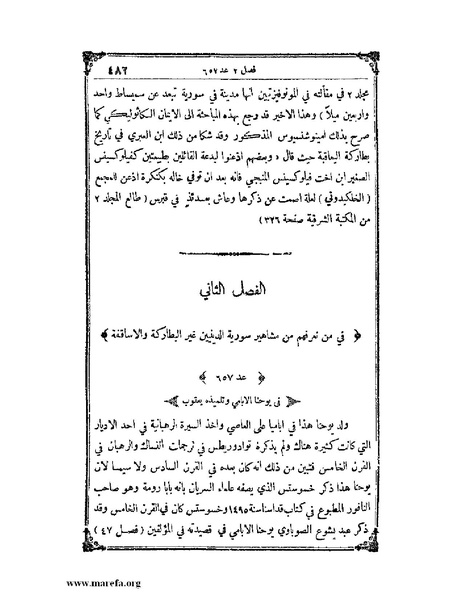 فصل ٢ عد ٦٥٧ ٤٨٦
مجلد ٢ في مقالته في المونوفيزتيين انها مدينة في سورية تبعد عن سميساط واحد
واربعين ميلاً) وهذا الاخير قد رجع بهذه المباحثة الى الايمان الكاثوليكي كما
صرح بذلك اينوشنسيوس المذكور وقد شكا من ذلك ابن العبري في تاريخ
بطاركة اليعاقبة حيث قال «وبعضهم اذعنوا لبدعة القائلين بطبيعتين كفيلوكسينس
الصغير ابن اخت فيلوكسينس المنبجي فانه بعد ان توفي خاله بكنكرة اذعن للمجمع
(الخلكيدوني) لعلة اصمت عن ذكرها وعاش بعدئذٍ في قبرس (طالع المجلد ٢
من المكتبة الشرقية صفحة ٣٢٦)
الفصل الثاني
﴿ في من نعرفهم من مشاهير سورية الدينيين غير البطاركة والاساقفة ﴾
﴿ عد ٦٥٧ ﴾
في يوحنا الابامي وتلميذه يعقوب
ولد يوحنا هذا في اباميا على العاصي واخذ السيرة الرهبانية في احد الاديار
التي كانت كثيرة هناك ولم يذكره توادوريطس في ترجمات النساك والرهبان في
القرن الخامس فتبين من ذلك انه كان بعده في القرن السادس ولا سيما لان
يوحنا هذا ذكر خسوستس الذي يصفه علماء السريان بانه بابا رومة وهو صاحب
النافور المطبوع في كتاب قداسنا سنة ١٤٩٥ وخسوستس كان في القرن الخامس وقد
ذكر عبد يشوع الصوباوي يوحنا الابامي في قصيدته في المؤلفين (فصل ٤٧)
www.marefa.org